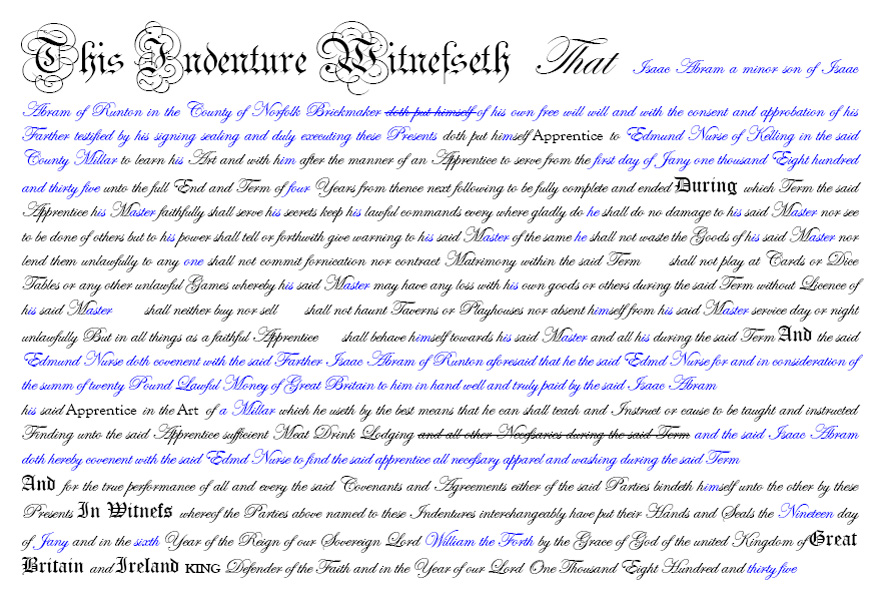 This Indenture Witnefseth That Isaac Abram a minor son of Isaac
Abram of Runton in the County of Norfolk Brickmaker doth put himself of his own free will will and with the consent and approbation of his
Farther testified by his signing sealing and duly executing these Presents doth put himself Apprentice to Edmund Nurse of Kelling in the said
County Millar to learn his Art and with him after the manner of an Apprentice to serve from the first day of Jany one thousand Eight hundred
and thirty five unto the full End and Term of four Years from thence next following to be fully complete and ended During which Term the said
Apprentice his Master faithfully shall serve his secrets keep his lawful commands every where gladly do he shall do no damage to his said Master nor see
to be done of others but to his power shall tell or forthwith give warning to his said Master of the same he shall not waste the Goods of his said Master nor
lend them unlawfully to any one shall not commit fornication nor contract Matrimony within the said Term shall not play at Cards or Dice
Tables or any other unlawful Games whereby his said Master may have any loss with his own goods or others during the said Term without Licence of
his said Master shall neither buy nor sell shall not haunt Taverns or Playhouses nor absent himself from his said Master service day or night
unlawfully But in all things as a faithful Apprentice shall behave himself towards his said Master and all his during the said Term And the said
Edmund Nurse doth covenent with the said Farther Isaac Abram of Runton aforesaid that he the said Edmd Nurse for and in consideration of
the summ of twenty Pound Lawful Money of Great Britain to him in hand well and truly paid by the said Isaac Abram
his said Apprentice in the Art of a Millar which he useth by the best means that he can shall teach and Instruct or cause to be taught and instructed
Finding unto the said Apprentice sufficient Meat Drink Lodging and all other Necefsaries during the said Term and the said Isaac Abram
doth hereby covenent with the said Edmd Nurse to find the said apprentice all necefsary apparel and washing during the said Term
And for the true performance of all and every the said Covenants and Agreements either of the said Parties bindeth himself unto the other by these
Presents In Witnefs whereof the Parties above named to these Indentures interchangeably have put their Hands and Seals the Nineteen day
of Jany and in the sixth Year of the Reign of our Sovereign Lord William the Forth by the Grace of God of the united Kingdom of Great
Britain and Ireland KING Defender of the Faith and in the Year of our Lord One Thousand Eight Hundred and thirty five